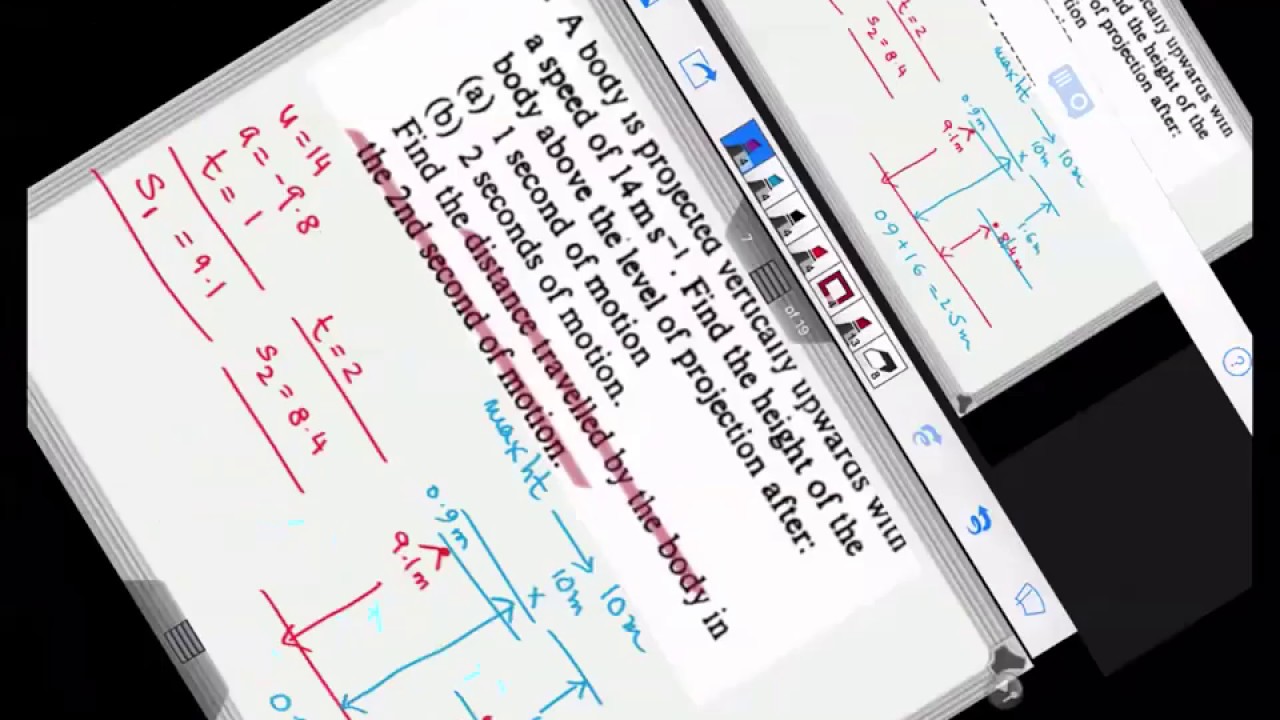 A body is projected vertically upwards with
a speed of 14 m s⁻¹. Find the height of the
body above the level of projection after:
(a) 1 second of motion
(b) 2 seconds of motion.
Find the distance travelled by the body in
the 2nd second of motion.
u = 14
a = -9.8
t = 1
S₁ = 9.1
t = 2
S₂ = 8.4
max ht → 10m
0.9m
x
10m
9.1m
7
of 19
4
4
4
4
13
8
ically upwards with
nd the height of the
of projection after:
tion
t = 2
S₂ = 8.4
max ht → 10m
0.9m
x
10m
9.1m
1.6m
8.4m
0.9 + 1.6 = 2.5m
?